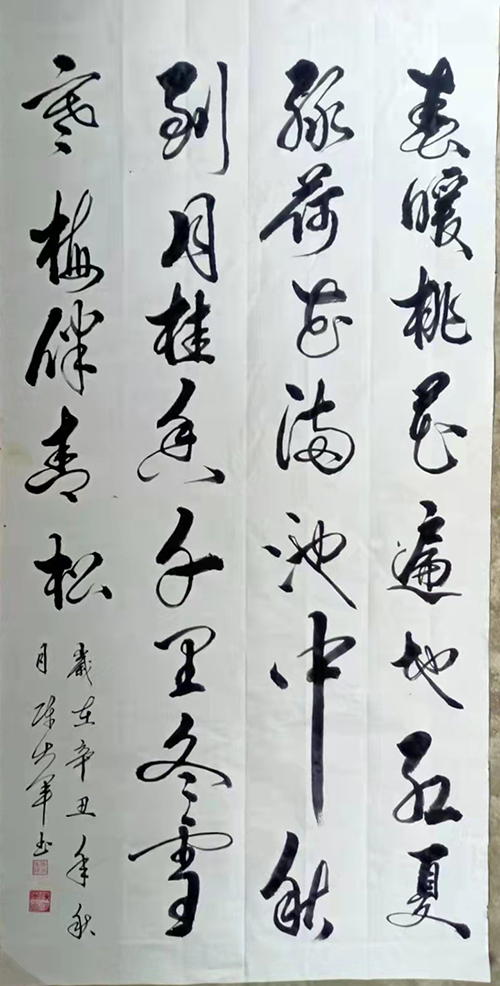 春暖桃花遍地红夏
绿荷花满池中秋
到月桂香千里冬雪
寒梅伴青松
歲在辛丑年秋
月陈军书